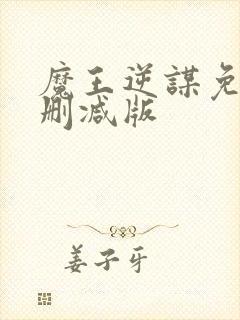 魔王逆謀免
刪減版
姜子牙